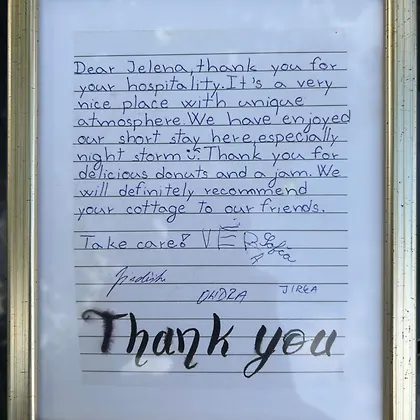 Dear Jelena, thank you for
your hospitality. It's a very
nice place with unique
atmosphere. We have enjoyed
our short stay here, especially
night storm :. Thank you for
delicious donuts and a jam. We
will definitely recommend
your cottage to our friends.
Take care!
JIRKA
Thank you